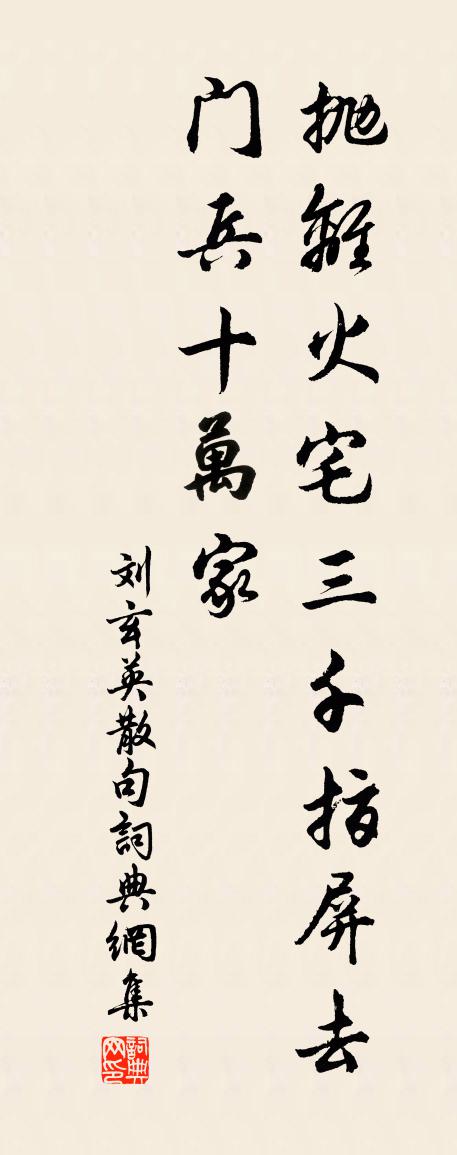 抛離火宅三千指屏去
门兵十萬家
刘玄英散句詞典網集
詞典网印